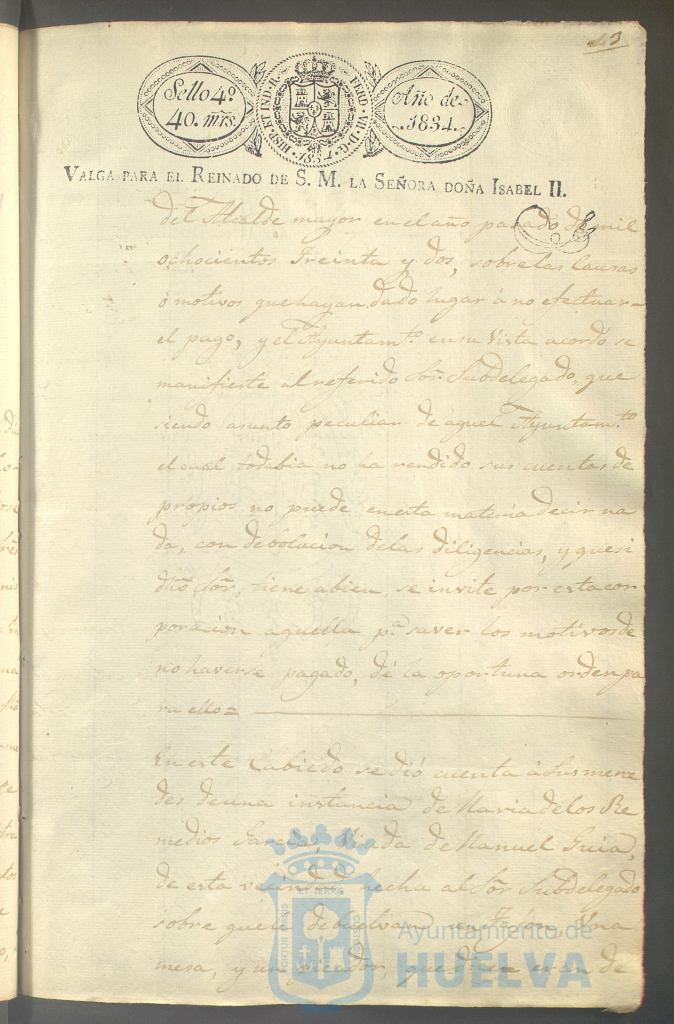 43
Sello 4º
40. mrs.
HISP. ET IND. R. FERD. VII. D. G.
1834
Año de
1834.
VALGA PARA EL REINADO DE S. M. LA SEÑORA DOÑA ISABEL II.
del Alcalde mayor en el año pasado de mil
ochocientos treinta y dos, sobre las causas
ó motivos que hayan dado lugar á no efectuar
el pago, y el Ayuntamto. en su vista acordó se
manifieste al referido Sor. Subdelegado, que
siendo asunto peculiar de aquel Ayuntamto.
el cual todabia no ha rendido sus cuentas de
propios no puede en esta materia decir na
da, con debolucion de las diligencias, y que si
dho Sor. tiene abien se invite por esta cor
poracion aquella pa. saver los motivos de
no haverse pagado, dé la oportuna orden pa
ra ello =
En este Cabildo se dió cuenta á sus merce
des de una instancia de Maria de los Re
medios Garcia, Viuda de Manuel Guia,
de esta vecindad hecha al Sor. Subdelegado
sobre que le debuelvan Una
mesa, y un picador, que dicen eran de
PORTUS MARIS ET TERRE CUSTODIA
Ayuntamiento de
HUELVA